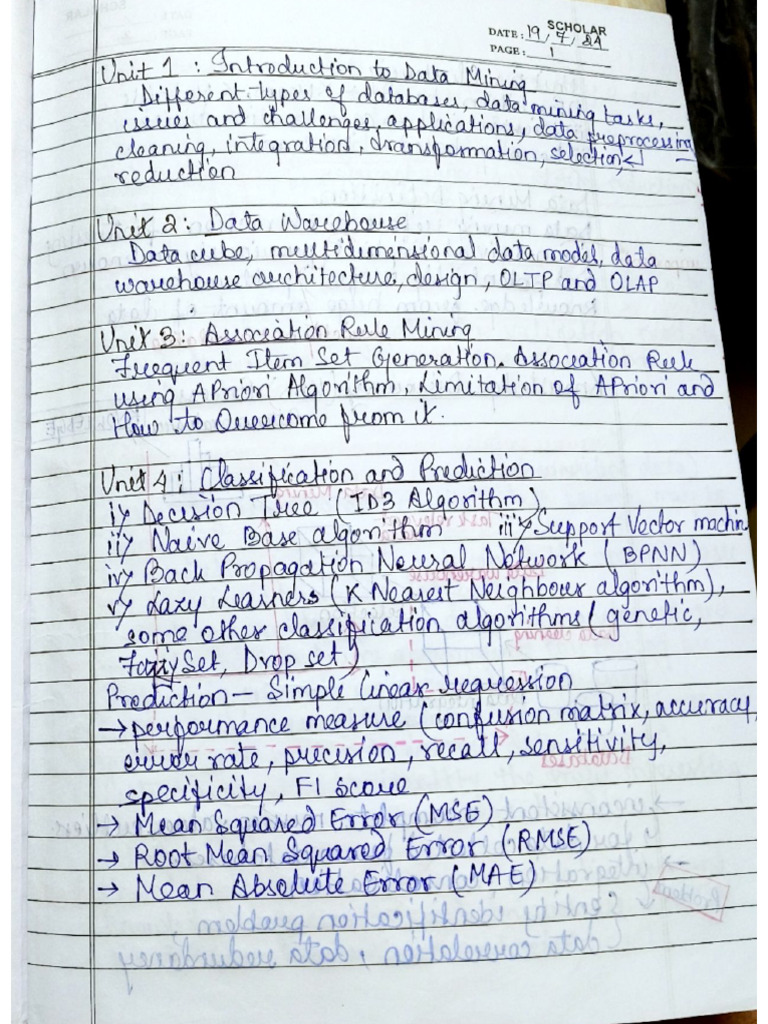 SCHOLAR
DATE: 19/7/24
PAGE: 1
Unit 1 : Introduction to Data Mining
Different types of databases, data mining tasks,
issues and challenges, applications, data preprocessing
cleaning, integration, transformation, selection,
reduction
Unit 2: Data Warehouse
Data cube, multidimensional data model, data
warehouse architecture, design, OLTP and OLAP
Unit 3: Association Rule Mining
Frequent Item Set Generation. Association Rule
using APriori Algorithm, Limitation of APriori and
How to Overcome from it.
Unit 4 : Classification and Prediction
i) Decision Tree (ID3 Algorithm)
ii) Naive Base algorithm iii) Support Vector machin
iv) Back Propagation Neural Network (BPNN)
v) Lazy Learners (K Nearest Neighbour algorithm),
some other classification algorithms (genetic,
Fuzzy Set, Drop set)
Prediction – Simple linear regression
→ performance measure (confusion matrix, accuracy,
error rate, precision, recall, sensitivity,
specificity, F1 Score
→ Mean Squared Error (MSE)
→ Root Mean Squared Error (RMSE)
→ Mean Absolute Error (MAE)